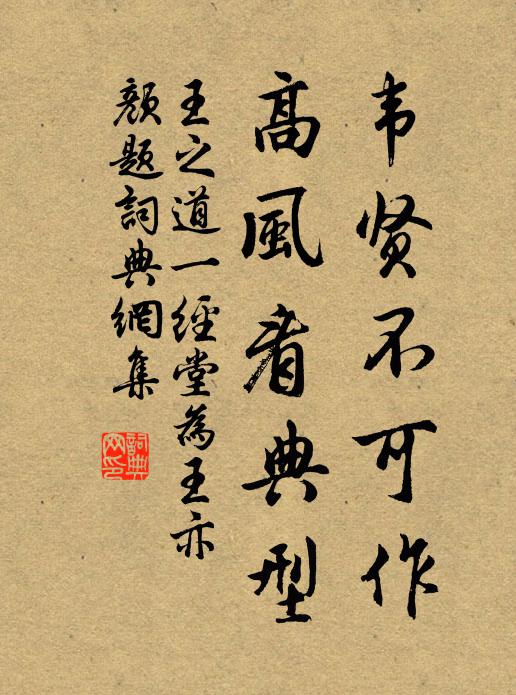 韦贤不可作
高風看典型
王之道一經堂為王亦
顏題詞典網集
詞典网印